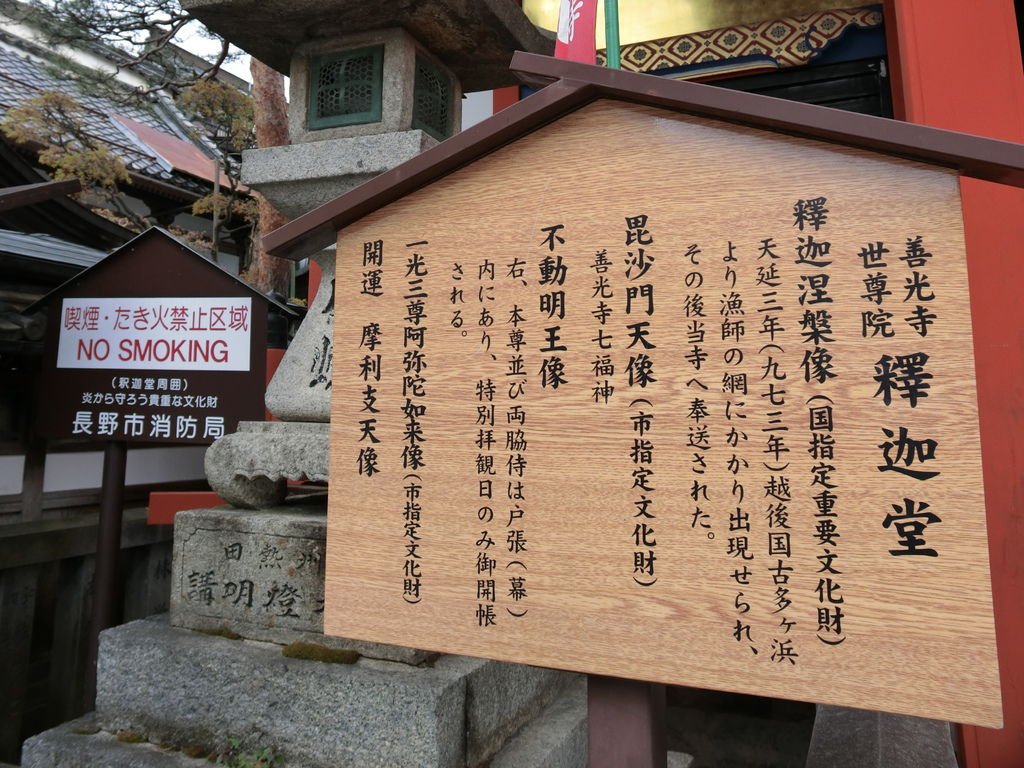 善光寺
世尊院
釋迦堂
釋迦涅槃像(国指定重要文化財)
天延三年(九七三年)越後国古多ヶ浜
より漁師の網にかかり出現せられ、
その後当寺へ奉送された。
毘沙門天像(市指定文化財)
善光寺七福神
不動明王像
右、本尊並び両脇侍は戸張(幕)
内にあり、特別拝観日のみ御開帳
される。
一光三尊阿弥陀如来像(市指定文化財)
開運 摩利支天像
喫煙・たき火禁止区域
NO SMOKING
(釈迦堂周囲)
炎から守ろう貴重な文化財
長野市消防局
州熱田
燈明講